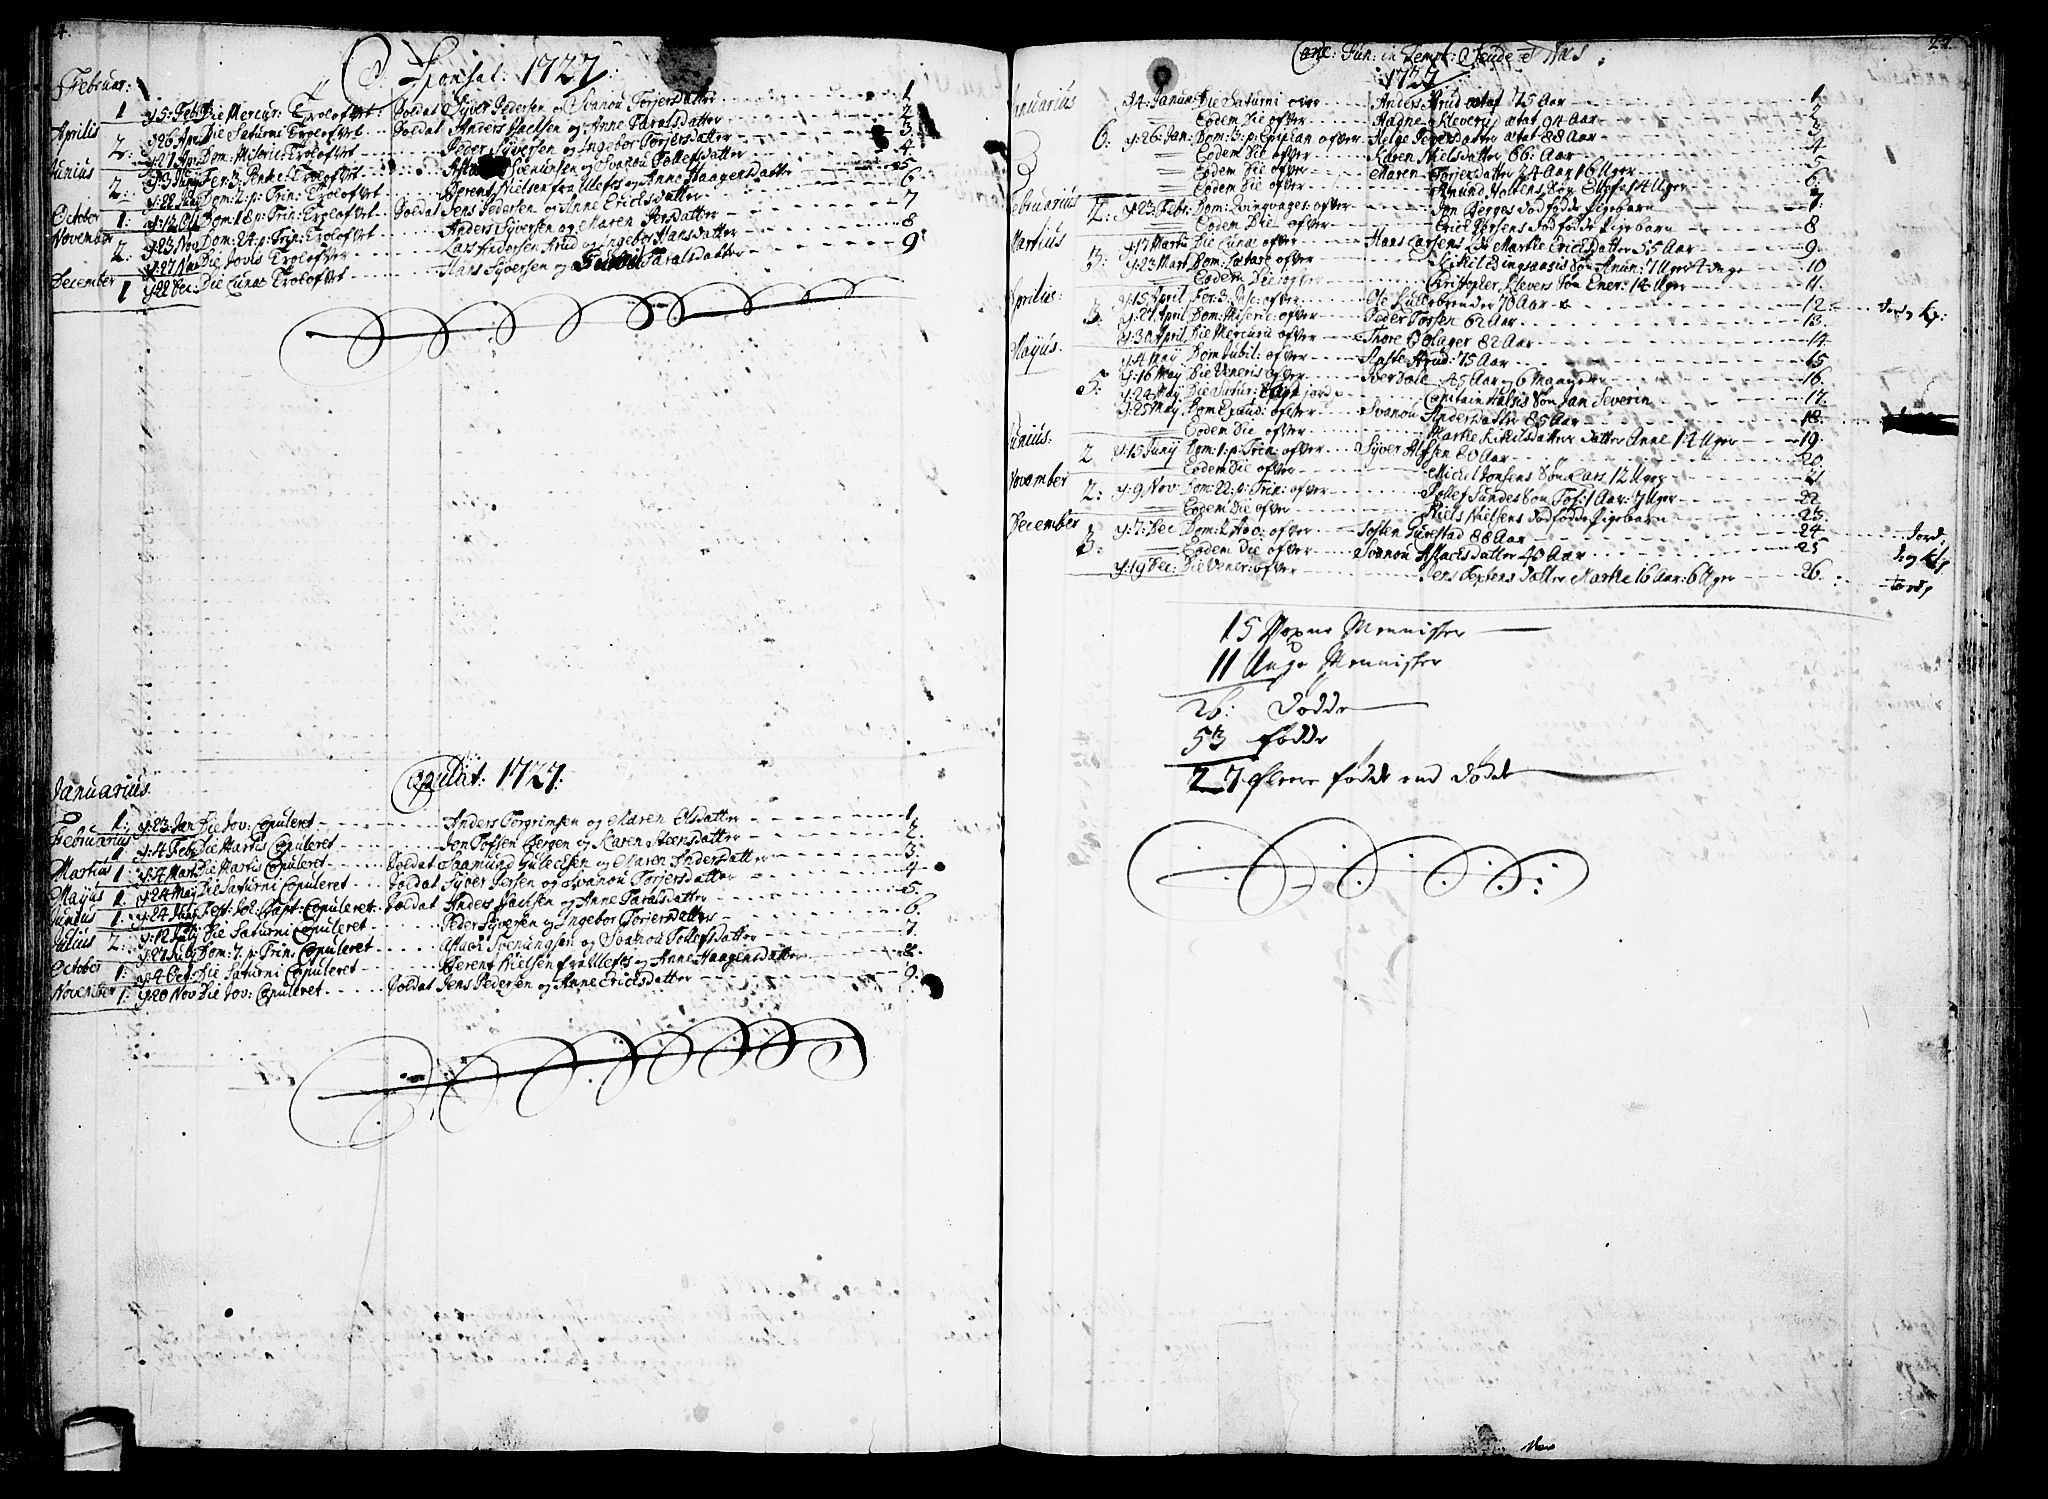 Sponsal: 1727:
Februar:
1 d: 5. Feb Die Mercur: Trolofvet Soldat Syver Pedersen og Svanou Torjersdatter 1
Aprilis
2: d 26 Apr Die Saturni Trolofvet Soldat Anders Paelsen og Anne Taralsdatter 2
d 27 Apr Dom: Miseric: Trolofvet Peder Syversen og Ingebor Torjersdatter 3
Junius
2: d 3 Junij Fer: 3. Pent: Trolofvet Svenungsen og Svanou Tollefsdatter 4
d 22 Dom: 2: p: Trin: Trolofvet Berent Nielsen fra Ulefts og Anne Haagensdatter 5
October 1: d: 12 Oct Dom: 18 p: Trin: Trolofvet Soldat Jens Pedersen og Anne Ericksdatter 6
November
2: d 23 Nov Dom: 24. p: Trin: Trolofvet Anders Syversen og Maren Persdatter 7
d: 27 Nov Die Jovis Trolofvet Lars Andersen Arud og Ingebor Hansdatter 8
December 1 d 22 Dec: Die Lunæ Trolofvet Hans Syversen og Taralsdatter 9
Copulat: 1727:
Januarius
1: d: 23: Jan Die Jov: Copuleret Anders Torgrimsen og Maren Olsdatter 1
Februarius 1 d: 4 Feb Die Martis Copuleret Jon Tofsen Bergen og Karen Steensdatter 2.
Martius 1: d: 4 Mart Die Martis Copuleret Soldat Aamund Gulecksen og Maren Andersdatter 3
Mayus 1. d 24 May Die Saturni Copuleret Soldat Syver Persen og Svanou Torjersdatter 4
Junius 1: d: 24 Junij Fest: Joh: Bapt: Copuleret Soldat Anders Paelsen og Anne Taralsdatter 5.
Julius 2: d: 12 Julij Die Saturni Copuleret Peder Syversen og Ingebor Torjersdatter 6.
d: 27 Julij Dom: 7. p: Trin: Copuleret Aslac Svenungsen og Svanou Tollefsdatter 7.
October 1: d: 4 Oct: Die Saturni Copuleret Berent Nielsen fra Ulefts og Anne Haagensdatter 8.
November 1: d: 20 Nov Die Jov: Copuleret Soldat Jens Pedersen og Anne Ericksdatter 9.
27.
Conc: Fun: in Templ:
1727
Januarius d 4. Janua: Die Saturni over Anders Arud ætat 75 Aar 1
Eodem Die ofver Madne Klevery ætat 94 Aar 2
6: d: 26: Jan: Dom: 3: p: Epiphan ofver Helge Pedersdatter ætat 88 Aar 3
Eodem Die ofver Karen Nielsdatter 66: Aar 4
Eodem Die ofver Maren Torjersdatter 24 Aar 16 Uger 5
Eodem Die ofver Amund Holtens Søn Ellef: 14 Uger 6
Februarius 2: d: 23: Febr: Dom: Qvinquages: ofver Jon Berges dødfødde Pigebarn 7
Eodem Die ofver Erick Persens dødfødde Pigebarn 8
Martius d 17 Marti Die Lunæ ofver Hans Larsens Marthe Ericksdatter 55 Aar 9
3: d: 23 Mart Dom: Lætare ofver Søn Anun: 7 Uger 10
Eodem Die ofver Christopher Klevers Søn Ener: 14 Uger 11.
Aprilis: d: 15 April Fer: 3: Pasc: ofver Ole Kullebrender 70 Aar 12
3: d: 27 April Dom: Miseric: ofver Peder Torsen 62 Aar 13.
d: 30 April Die Mercurii ofver Thore Oolager 82 Aar 14
Mayus. d: 4 May Dom Jubil: ofver Aaste Arud: 75 Aar 15
d: 16 May Die Veneris ofver Iver Dale: 45 Aar og 6 Maaneder 16.
5: d: 24 May: Die Satur: Capitain Halsis Søn Jan Severin 17.
d 25 May Dom Exaud: ofver Svanou Andersdatter 85 Aar 18
Eodem Die ofver Marthe Kikilsdatters Datter Anne 14 Uger 19.
Junius: 2 d: 15 Junij Dom: 1: p: Trin: ofver Syver Alfsen 80 Aar 20
Eodem Die ofver Michel Jonsens Søn Lars 12 Uger 21
November 2: d: 9 Nov: Dom: 22: p: Trin: ofver Tollef Sundes Søn Tof: 1 Aar: 7 Uger 22
Eodem Die ofver Niels Nielsens Dødfødde Pigebarn 23:
December d: 7: Dec Dom: 2 Adv: ofver Soften Gurestad 88 Aar 24
3: Eodem Die ofver Svanou Aslacksdatter 40 Aar 25
d: 19 Dec: Die Vener: ofver Jens Eptens Datter Marthe 16 Aar: 6 Uger 26.
15 Voxne Mennisker
11 Unge Mennisker
26: Dødde
53 fødde
27 fleere fødde end Dødde